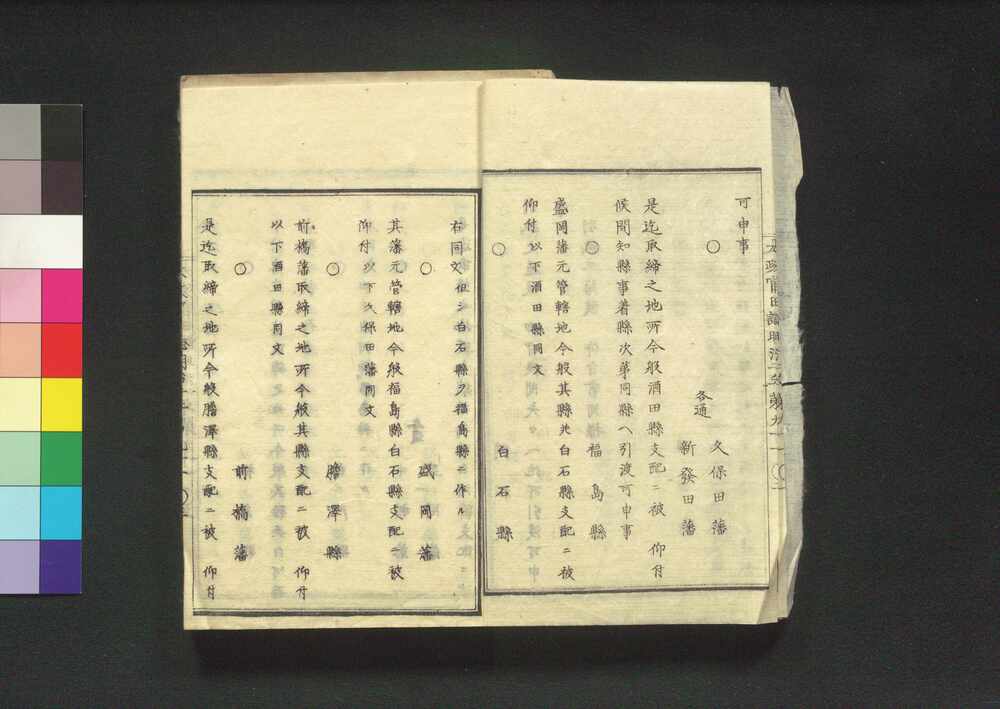 可申事
○
各通
久保田藩
新發田藩
是迄取締之地所今般酒田縣支配ニ被 仰付
候間知縣事着縣次第同縣ヘ引渡可申事
○
福島縣
盛岡藩元管轄地今般其縣并白石縣支配ニ被
仰付 以下酒田縣同文
○
白石縣
右同文 但シ白石縣ヲ福島縣ニ作ル
○
盛岡藩
其藩元管轄地今般福島縣白石縣支配ニ被
仰付 以下久保田藩同文
○
膽澤縣
前橋藩取締之地所今般其縣支配ニ被 仰付
以下酒田縣同文
○
前橋藩
是迄取締之地所今般膽澤縣支配ニ被 仰付